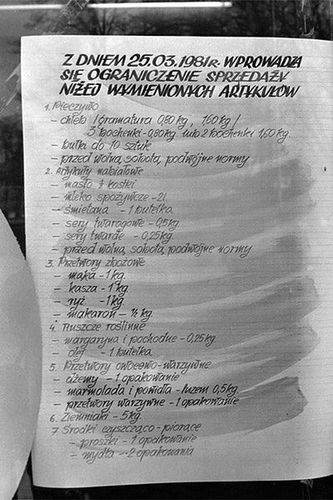 Z DNIEM 25.03.1981r. WPROWADZA
SIĘ OGRANICZENIE SPRZEDAŻY
NIŻEJ WYMIENIONYCH ARTYKUŁÓW
1. Pieczywo
- chleb /gramatura 0,80 kg, 1,60 kg/
3 bochenki - 0,80 kg. lub 2 bochenki 1,60 kg.
- bułka do 10 sztuk
- przed wolną sobotą, podwójne normy
2. Artykuły nabiałowe
- masło kostki
- mleko spożywcze - 2l
- śmietana - 1 butelka
- sery twarogowe - 0,5 kg
- sery twarde - 0,25 kg.
- przed wolną sobotą, podwójne normy
3. Przetwory zbożowe
- mąka - 1 kg.
- kasza - 1 kg
- ryż - 1 kg
- makaron - ½ kg
4. Tłuszcze roślinne
- margaryna i pochodne - 0,25 kg
- olej - 1 butelka
5. Przetwory owocowo-warzywne
- dżemy - 1 opakowanie
- marmolada i powidła - luzem 0,5 kg
- przetwory warzywne - 1 opakowanie
6. Ziemniaki - 5 kg
7 Środki czyszcząco-piorące
- proszki - 1 opakowanie
- mydła - 2 opakowania